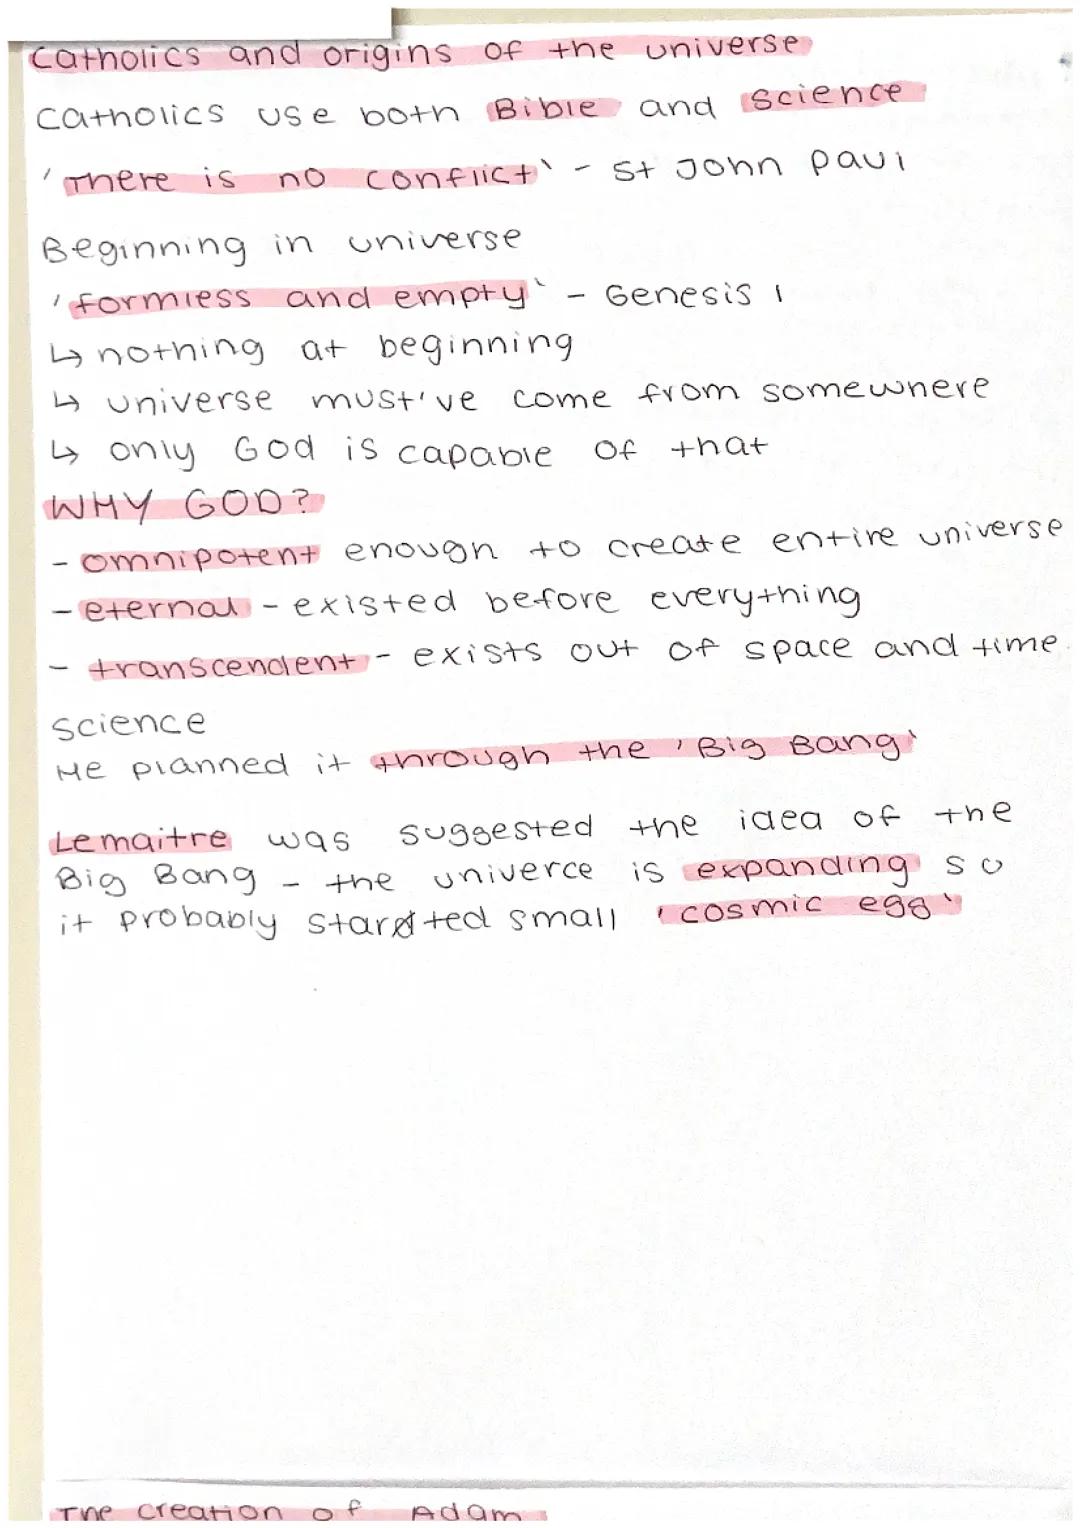 Catholics and origins of the universe
Catholics use both Bible and science
'There is no conflict' - St John Paul
Beginning in universe
'formless and empty' - Genesis 1
↳ nothing at beginning
↳ universe must've come from somewhere
↳ only God is capable of that
WHY GOD?
- omnipotent enough to create entire universe
- eternal - existed before everything
- transcendent - exists out of space and time.
Science
He planned it through the 'Big Bang'
Lemaitre was suggested the idea of the
Big Bang - the univerce is expanding so
it probably started small 'cosmic egg'
The creation of Adam